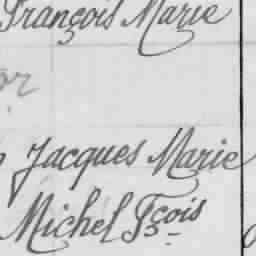 François Marie
or
Jacques Marie
Michel Fçois